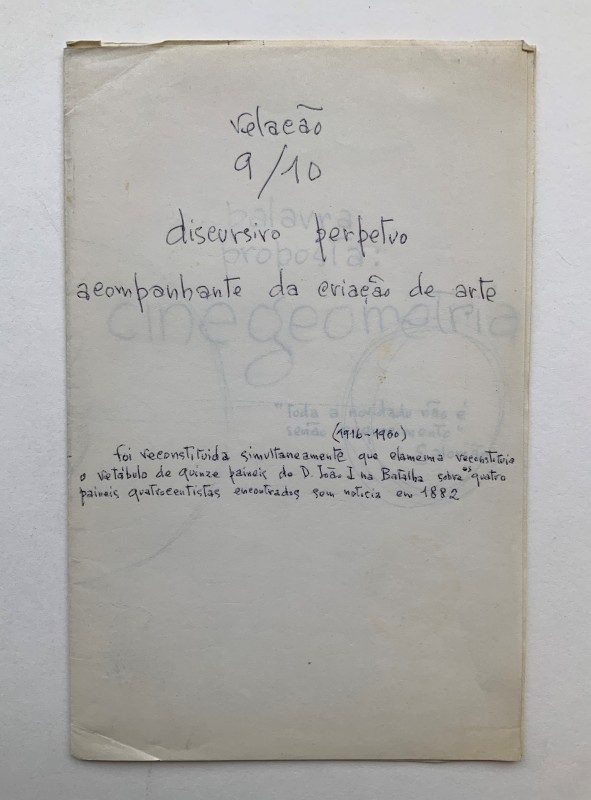 relação
9/10
discursivo perpetuo
palavra
proposta:
acompanhante da criação de arte
cinegeometria
"toda a novidade não é
senão
(1916-1960)
foi reconstituida simultaneamente que elamesma reconstituio
o retábulo de quinze paineis de D. João I na Batalha sobre os quatro
paineis quatrocentistas encontrados sem noticia em 1882